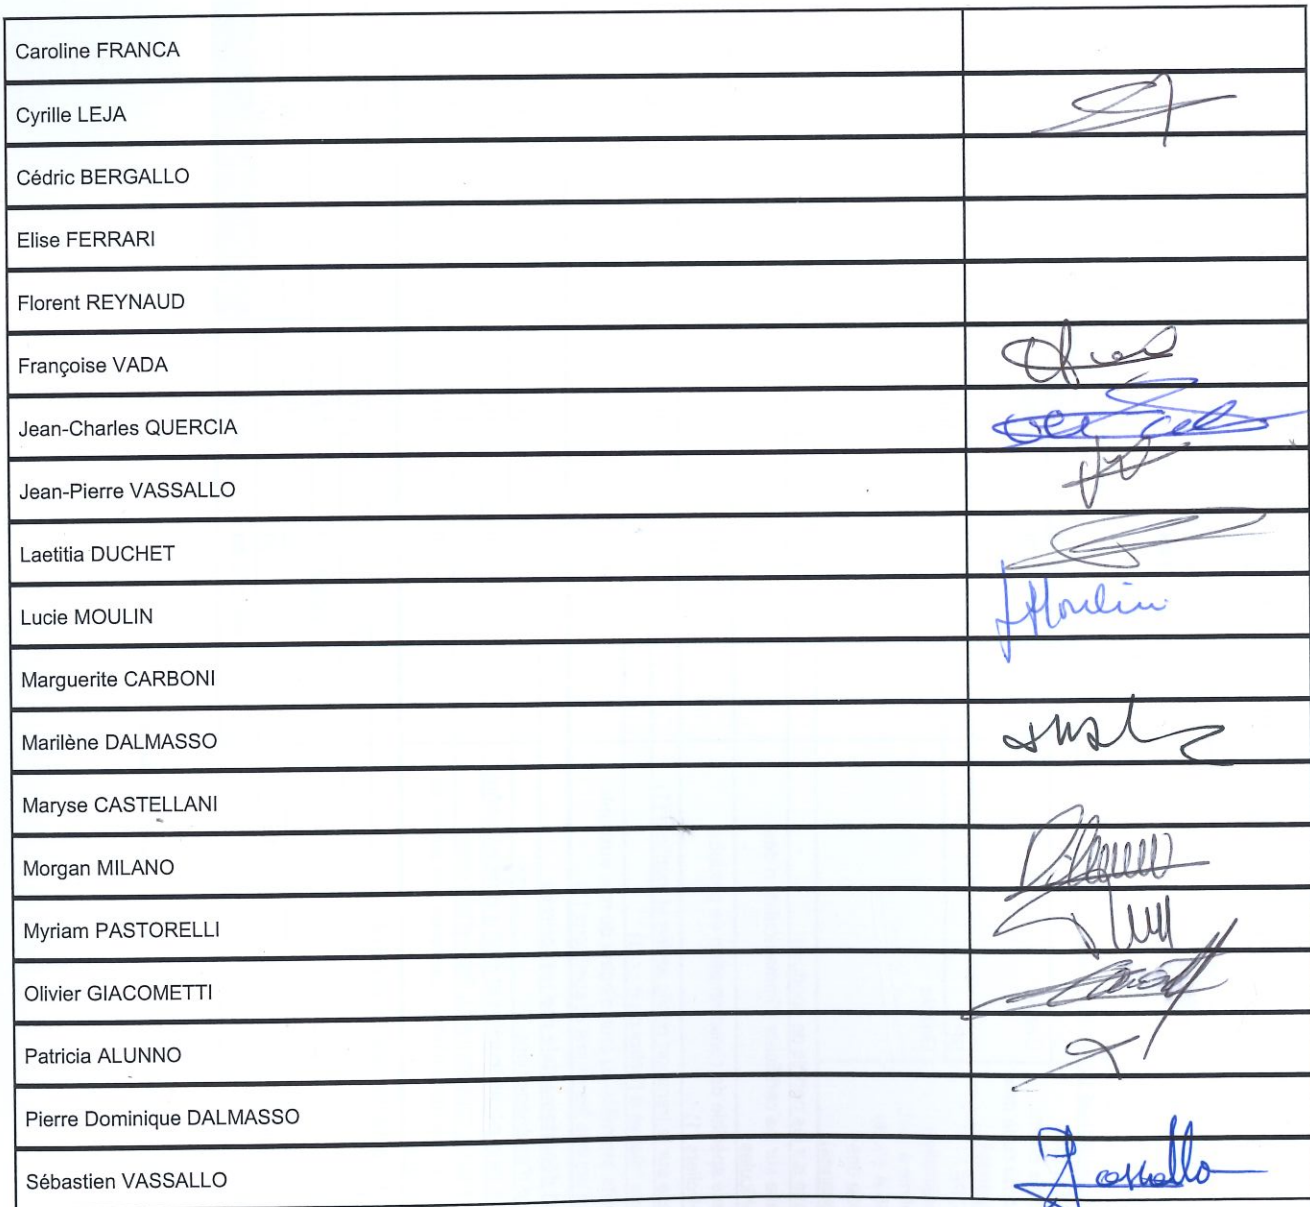 Caroline FRANCA
Cyrille LEJA
Cédric BERGALLO
Elise FERRARI
Florent REYNAUD
Françoise VADA
Jean-Charles QUERCIA
Jean-Pierre VASSALLO
Laetitia DUCHET
Lucie MOULIN
Marguerite CARBONI
Marilène DALMASSO
Maryse CASTELLANI
Morgan MILANO
Myriam PASTORELLI
Olivier GIACOMETTI
Patricia ALUNNO
Pierre Dominique DALMASSO
Sébastien VASSALLO